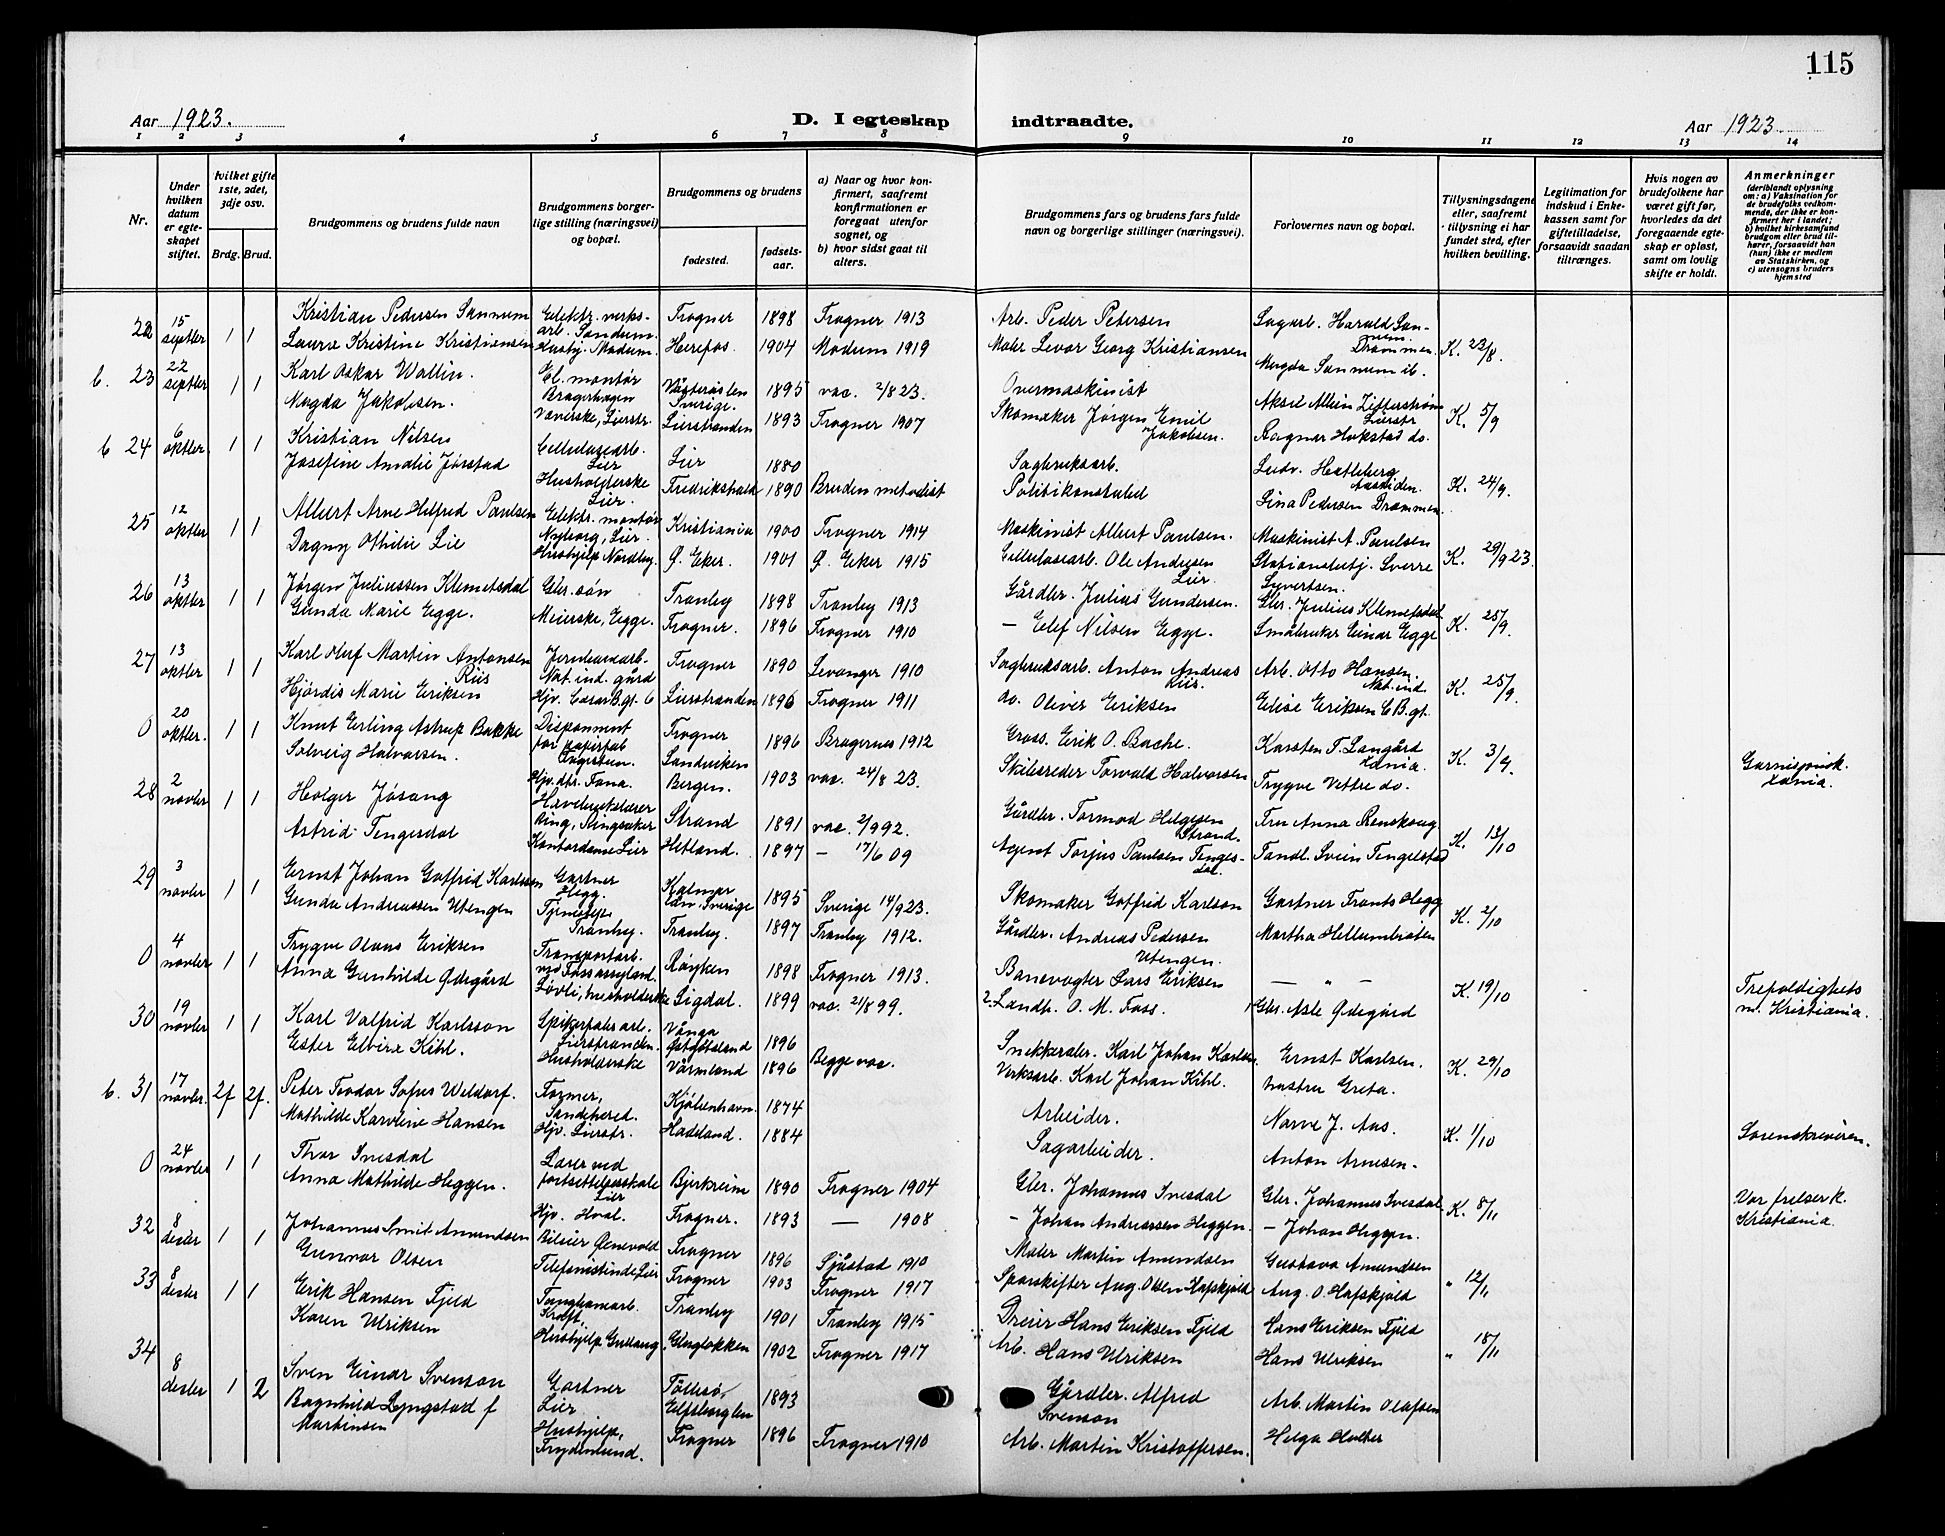 115
Aar 1923.
D. I egteskap indtraadte.
Aar 1923
1 2 3 4 5 6 7 8 9 10 11 12 13 14
Nr.
Under hvilken datum er egteskapet stiftet.
hvilket gifte 1ste, 2det, 3dje osv.
Brdg. Brud.
Brudgommens og brudens fulde navn
Brudgommens borgerlige stilling (næringsvei) og bopæl.
Brudgommens og brudens
fødested.
fødselsaar.
a) Naar og hvor konfirmert, saafremt konfirmationen er foregaat utenfor sognet, og
b) hvor sidst gaat til alters.
Brudgommens fars og brudens fars fulde navn og borgerlige stillinger (næringsvei).
Forlovernes navn og bopæl.
Tillysningsdagene eller, saafremt tillysning ei har fundet sted, efter hvilken bevilling.
Legitimation for indskud i Enkekassen samt for giftetilladelse, forsaavidt saadan tiltrænges.
Hvis nogen av brudefolkene har været gift før, hvorledes da det foregaaende egteskap er opløst, samt om lovlig skifte er holdt.
Anmerkninger
(deriblandt oplysning om: a) Vaksination for de brudefolks vedkommende, der ikke er konfirmert her i landet; b) hvilket kirkesamfund brudgom eller brud tilhører, forsaavidt han (hun) ikke er medlem av Statskirken, og c) utensogns bruders hjemsted
22 15 septbr 1 1 Kristian Pedersen Sannum Elektr. verksarb. Sandum. Frogner 1898 Frogner 1913 Arb. Peder Petersen Sagarb. Harald Sannum. Drammen. K. 23/8.
Laura Kristine Kristiansen Hushj. Modum. Herefos. 1904 Modum 1919 Maler Levor Georg Kristiansen Magda Sannum ib.
b. 23 22 septbr 1 1 Karl Oskar Wallin. El. montør Bragerhagen Västeråslen Sverige. 1895 vac. 2/8 23. Overmaskinist Aksel Allein Zetterstrøm Lierstr K. 5/9
Magda Jakobsen. Væverske, Lierstr. Lierstranden 1893 Frogner 1907 Skomaker Jørgen Emil Jakobsen. Ragnar Hokstad do.
b 24 6 oktbr. 1 1 Kristian Nilsen Cellulosearb. Lier Lier 1880 Sagbruksarb. Ludv. Hatleberg K. 24/9.
Josefine Amalie Jørstad Husholderske Lier. Fredrikshald 1890 Bruden metodist Politikonstabel Lina Pedersen Drammen.
25 12 oktbr 1 1 Albert Arne Hilfred Paulsen Elektr. montør Nyborg, Lier. Kristiania 1900 Frogner 1914 Maskinist Albert Paulsen. Maskinist A. Paulsen K. 29/9 23.
Dagny Othilie Lie Hushjelp Nordby. Ø. Eker. 1901 Ø. Eker 1915 Cellulosearb. Ole Andersen Lier. Stationsbetj. Sverre Syvertsen.
26 13 oktbr 1 1 Jørgen Juliussen Klemetsdal Gbr. søn Tranby 1898 Tranby 1913 Gårdbr. Julius Gundersen. Gbr. Julius Klemetsdal K. 25/9.
Gunda Marie Egge. Meierske, Egge. Frogner. 1896 Frogner 1910 — Elef Nilsen Egge. Småbruker Einar Egge
27 13 oktbr 1 1 Karl Oluf Martin Antonsen Riis Jernbanearb. Nat. ind. gård Frogner 1890 Levanger 1910 Sagbruksarb. Anton Andreas Riis. Arb. Otto Hansen. Nat. ind. K. 25/9.
Hjørdis Marie Eriksen Hjv. Cesar B.gt. 6 Lierstranden 1896 Frogner 1911 do. Oliver Eriksen Elise Eriksen C B. gt.
0 20 oktbr. 1 1 Knut Erling Astrup Bakke Disponent for papirfab. Frogner 1896 Bragernes 1912 Gross. Erik O. Bache. Karsten T. Langård Xania. K. 3/9. Garnisonsk. Xania.
Solveig Halvorsen. Hjv. dtr. Fana. Sandviken Bergen. 1903 vac. 24/8 23. Skibsreder Torvald Halvorsen Trygve Vettre do.
28 2 novbr 1 1 Holger Jøsang Havebrukslærer Ring, Ringsaker Strand 1891 vac. 2/9 92. Gårdbr. Tormod Helgesen Strand. Fru Anna Renskoug K. 13/10
Astrid Tengesdal Kontordame Lier Hetland. 1897 — 17/6 09 Agent Torjus Paulsen Tengesdal. Tandl. Svein Tengesdal
29 3 novbr 1 1 Ernst Johan Gotfrid Karlsson Gartner Hegg. Kalmar län Sverige 1895 Sverige 14/9 23. Skomaker Gotfrid Karlson Gartner Frants Hegg K. 2/10
Gunda Andreassen Utengen Tjenestep. Tranby. Tranby. 1897 Tranby 1912. Gårdbr. Andreas Pedersen Utengen. Martha Hellumbråten
0 4 novbr 1 1 Trygve Olaus Eriksen Transportarb. Røyken 1898 Frogner 1913. Banevogter Lars Eriksen — „ — K. 19/10 Trefoldighets m. Kristiania.
Anna Gunhilde Ødegård Løvli, husholderske Sigdal. 1899 vac. 21/8 99. 2. Landh. O. M. Foss. Gbr. Asle Ødegård
30 19 novbr 1 1 Karl Valfrid Karlsson Spikerfabr. arb. Lierstranden. Vånga Østgötaland 1896 Begge vac. Snekkerarb. Karl Johan Karlson Ernst Karlsen. K. 29/10
Ester Elvira Kihl. Husholderske Värmland 1896 Verksarb. Karl Johan Kihl. hustru Greta.
b. 31 17 novbr. 2f 2f. Peter Teodor Sofus Weldorf. Formер, Sandhered. Kjøbenhavn. 1874 Arbeider. Narve J. Aas. K. 1/10 Sorenskriveren.
Mathilde Karoline Hansen Hjv. Lierstr. Hadeland. 1884 Sagarbeider. Anton Arnesen.
0 24 novbr 1 1 Thor Ivesdal Lærer ved fortsettelsesskole Lier Bjerkreim 1890 Frogner 1904 Gbr. Johannes Ivesdal Gbr. Johannes Ivesdal K. 8/11 Vor frelser k. Kristiania.
Anna Mathilde Heggen. Hjv. Hval. Frogner. 1893 — 1908 — Johan Andreassen Heggen. — Johan Heggen.
32 8 desbr 1 1 Johannes Smit Amundsen Bileier Grenevold Frogner 1896 Sjåstad 1910 Maler Martin Amundsen Gustava Amundsen „ 12/11
Gunvor Olsen Telefonistinde Lier Frogner 1903 Frogner 1917 Sporskifter Aug. Olsen Hafskjold Aug. O. Hafskjold
33 8 desbr 1 1 Erik Hansen Fjeld Kraft. Tranby 1901 Tranby 1915 Dreier Hans Eriksen Fjeld Hans Eriksen Fjeld „ 18/11
Karen Ulriksen Hushjelp Gullaug Engløkken 1902 Frogner 1917 Arb. Hans Ulriksen Hans Ulriksen
34 8 desbr 1 2 Sven Einar Svenson Gartner Lier Töllesö, Elfsborg len 1893 Gårdbr. Alfred Svenson Arb. Martin Olafsen
Ragnhild Lyngstad f Martinsen Hushjelp, Frydenlund. Frogner 1896 Frogner 1910 Arb. Martin Kristoffersen. Helga Holter